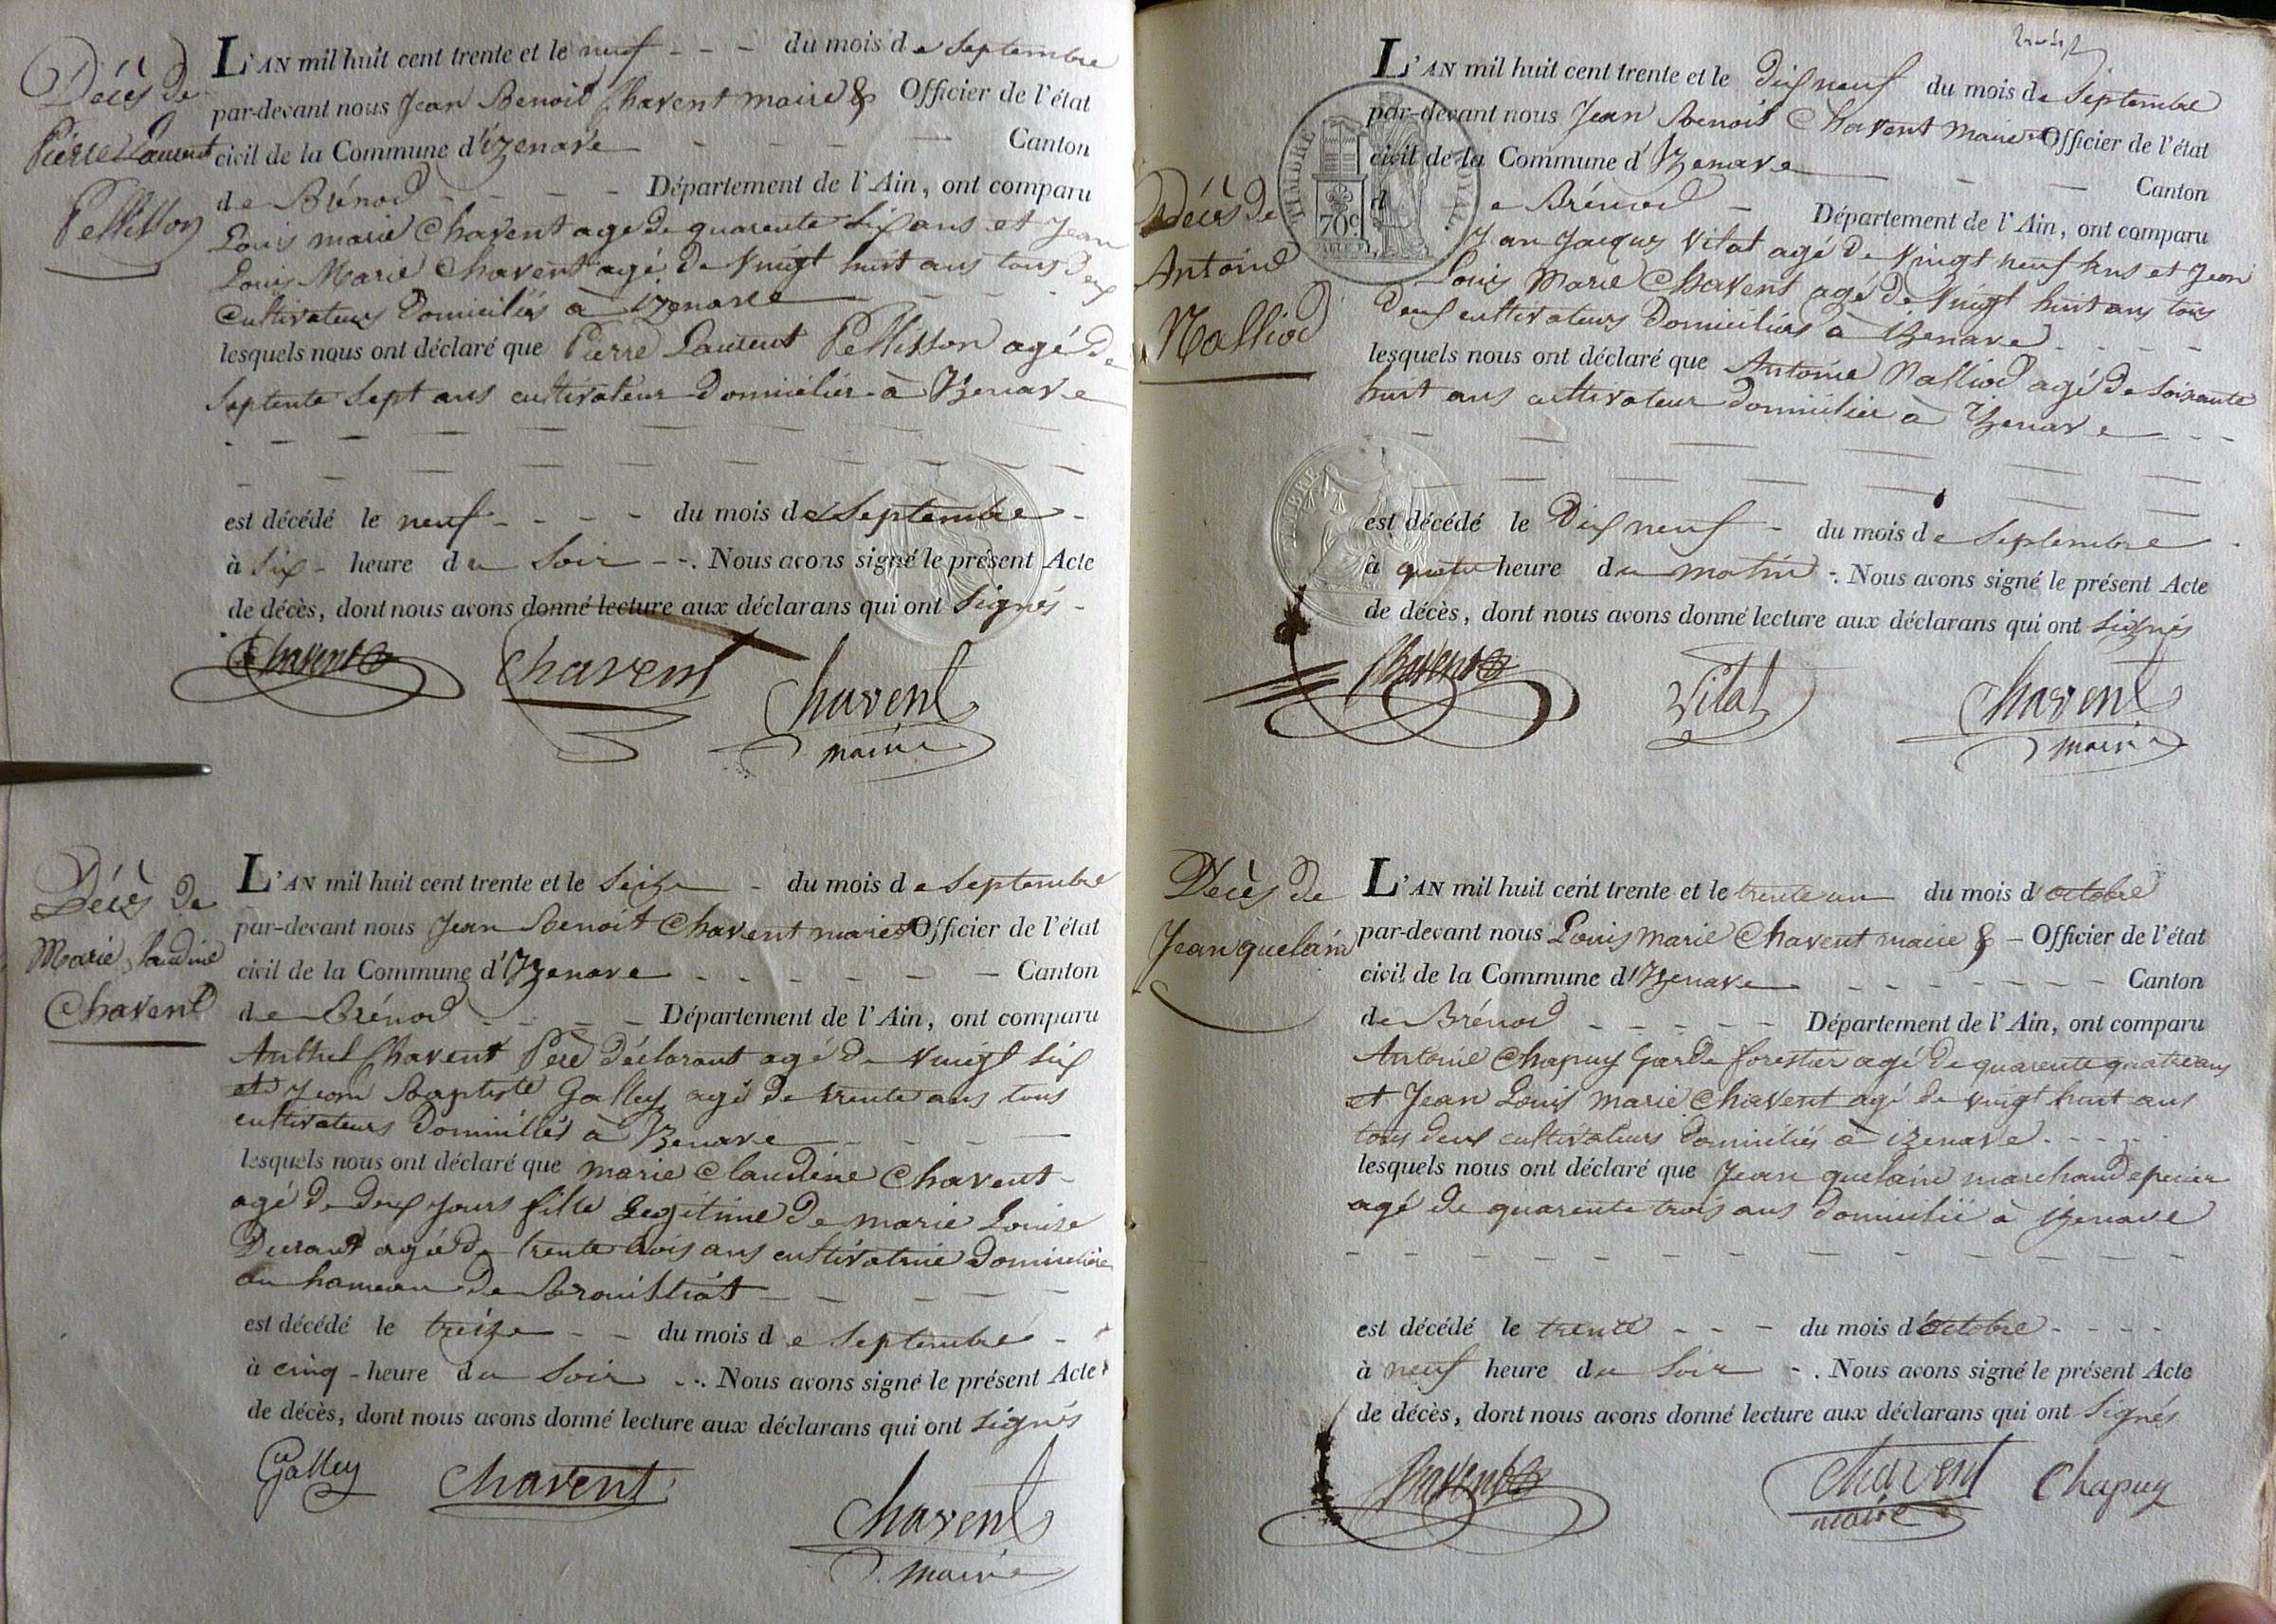 Décès de
Pierre Laurent
Pellisson
L'AN mil huit cent trente et le neuf - - - du mois de Septembre
par-devant nous Jean Benoit Chavent maire & Officier de l'état
civil de la Commune d'izenave - - - - - Canton
de Brénod - - - - Département de l'Ain, ont comparu
Louis marie Chavent agé de quarente six ans et Jean
Louis Marie Chavent agé de vingt huit ans tous deux
Cultivateurs domiciliés à izenave - - -
lesquels nous ont déclaré que Pierre Laurent Pellisson agé de
septente sept ans cultivateur domicilier à Izenave
est décédé le neuf - - - - du mois de Septembre -
à six - heure du soir - -. Nous avons signé le présent Acte
de décès, dont nous avons donné lecture aux déclarans qui ont signés -
Chavent Chavent Chavent
maire
Décès de
Marie Claudine
Chavent
L'AN mil huit cent trente et le seize - du mois de Septembre
par-devant nous Jean Benoit Chavent maire & Officier de l'état
civil de la Commune d'Izenave - - - - - - Canton
de Brénod - - - - Département de l'Ain, ont comparu
Anthel Chavent Père déclarant agé de vingt six
et Jean Baptiste Galley agé de trente ans tous
cultivateurs domiciliés à Izenave - - - -
lesquels nous ont déclaré que marie Claudine Chavent -
agé de deux jours fille Legitime de marie Louise
Durant agé de trente trois ans cultivatrice domicilière
au hameau de Brouilliat - - - - -
est décédé le treize - - du mois de Septembre -
à cinq - heure du soir -. Nous avons signé le présent Acte
de décès, dont nous avons donné lecture aux déclarans qui ont signés
Galley Chavent Chavent
maire
trois
Décès de
Antoine
Nalliod
TIMBRE ROYAL
70 c.
L'AN mil huit cent trente et le dix neuf du mois de Septembre
par-devant nous Jean Benoit Chavent Maire & Officier de l'état
civil de la Commune d'Izenave - - Canton
de Brénod - Département de l'Ain, ont comparu
Jean Jacques Vitat agé de vingt neuf ans et Jean
Louis Marie Chavent agé de vingt huit ans tous
deux cultivateurs domiciliés à izenave - - - -
lesquels nous ont déclaré que Antoine Nalliod agé de soixante
huit ans cultivateur domicilier à Izenave - - -
TIMBRE
est décédé le Dix neuf - du mois de Septembre -
à quatre heure du matin -. Nous avons signé le présent Acte
de décès, dont nous avons donné lecture aux déclarans qui ont signés
Chavent Vitat Chavent
maire
Décès de
Jean quelain
L'AN mil huit cent trente et le trente un du mois d'octobre
par-devant nous Louis marie Chavent maire & - Officier de l'état
civil de la Commune d'Izenave - - - - - - - Canton
de Brénod - - - - - Département de l'Ain, ont comparu
Antoine Chapuy garde forestier agé de quarente quatre ans
et Jean Louis marie Chavent agé de vingt huit ans
tous deux cultivateurs domiciliés à izenave - - - -
lesquels nous ont déclaré que Jean quelain marchand epicier
agé de quarente trois ans domicilié à izenave
est décédé le trente - - - du mois d'octobre - - - -
à neuf heure du soir -. Nous avons signé le présent Acte
de décès, dont nous avons donné lecture aux déclarans qui ont signés
Chavent Chavent Chapuy
maire